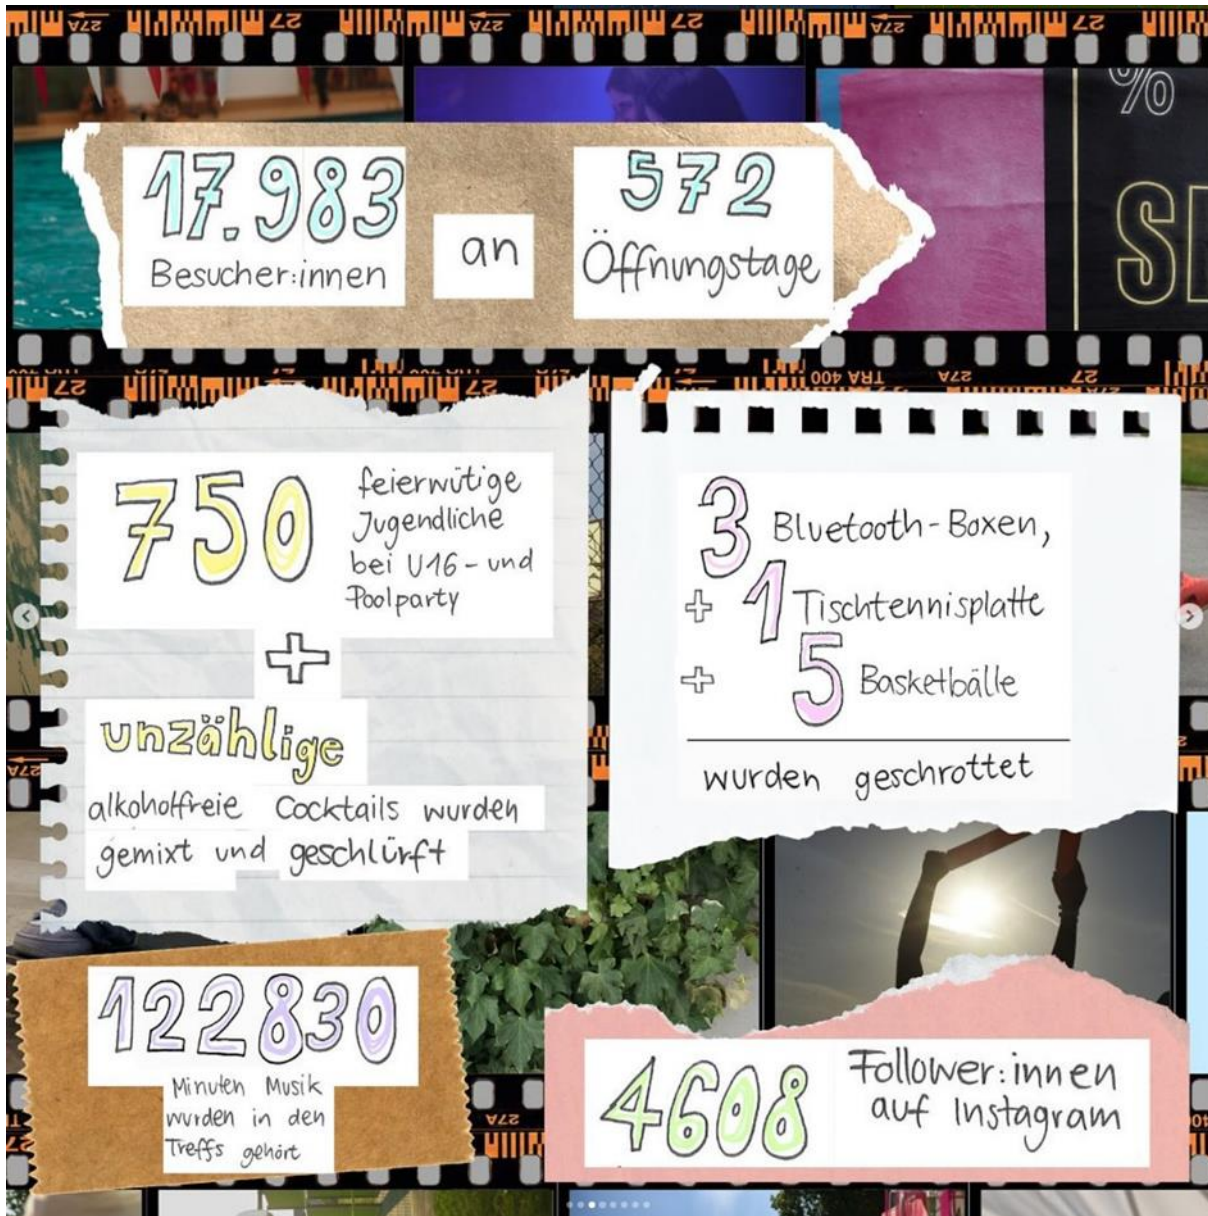 17.983
Besucher:innen
an
572
Öffnungstage
%
TRA 400
27A
27
750
feierwütige
Jugendliche
bei U16- und
Poolparty
+
unzählige
alkoholfreie Cocktails wurden
gemixt und geschlürft
3 Bluetooth-Boxen,
+ 1 Tischtennisplatte
+ 5 Basketbälle
wurden geschrottet
122830
Minuten Musik
wurden in den
Treffs gehört
4608
Follower:innen
auf Instagram